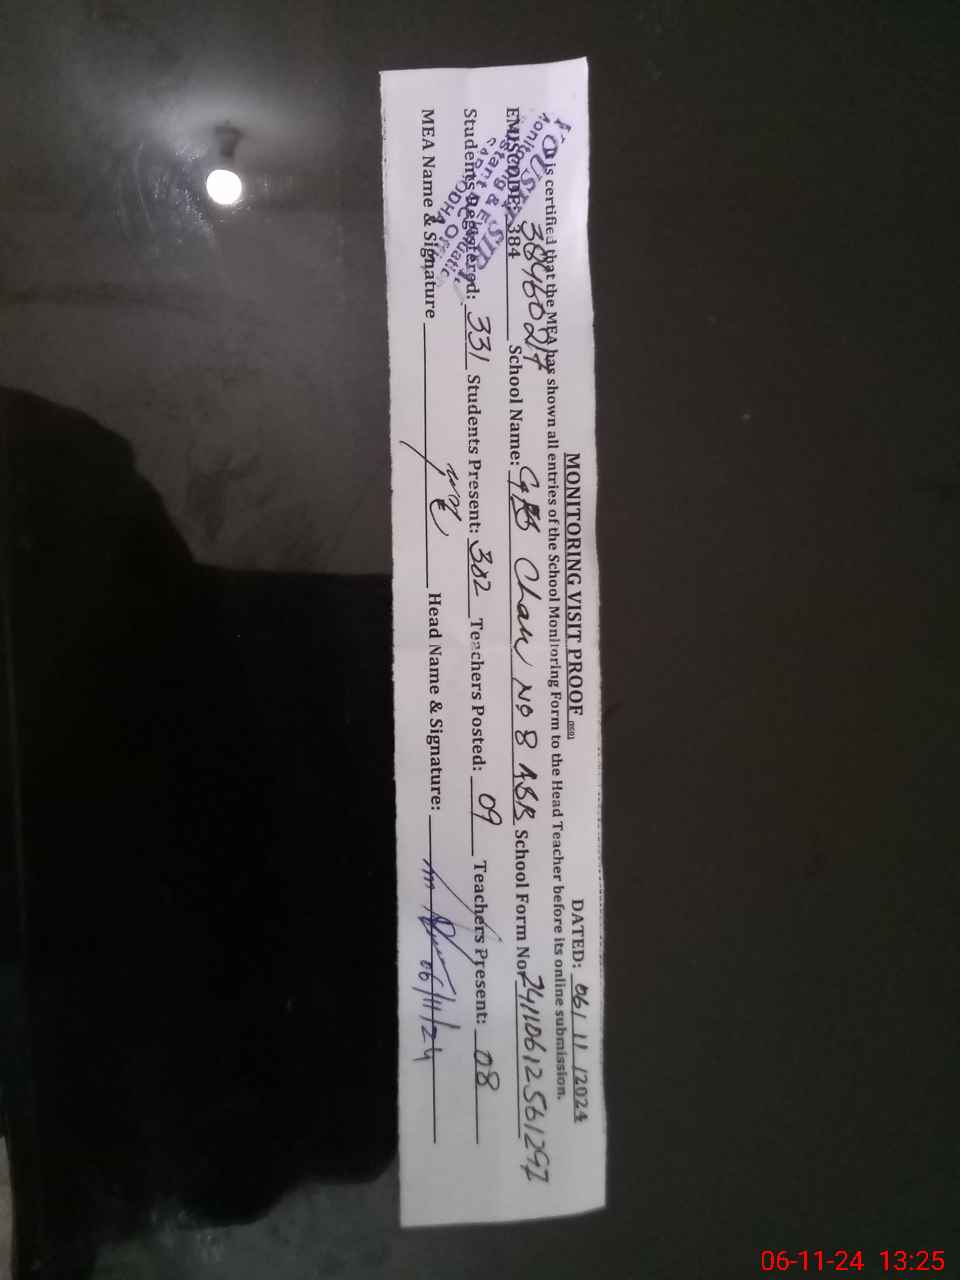 MONITORING VISIT PROOF DATED: 06/11/2024
It is certified that the MEA has shown all entries of the School Monitoring Form to the Head Teacher before its online submission.
EMISCODE: 384 38460217 School Name: Chak No 8 ASB School Form No 24110612561297
Students Registered: 331 Students Present: 302 Teachers Posted: 09 Teachers Present: 08
MEA Name & Signature Head Name & Signature: 06/11/24
06-11-24 13:25